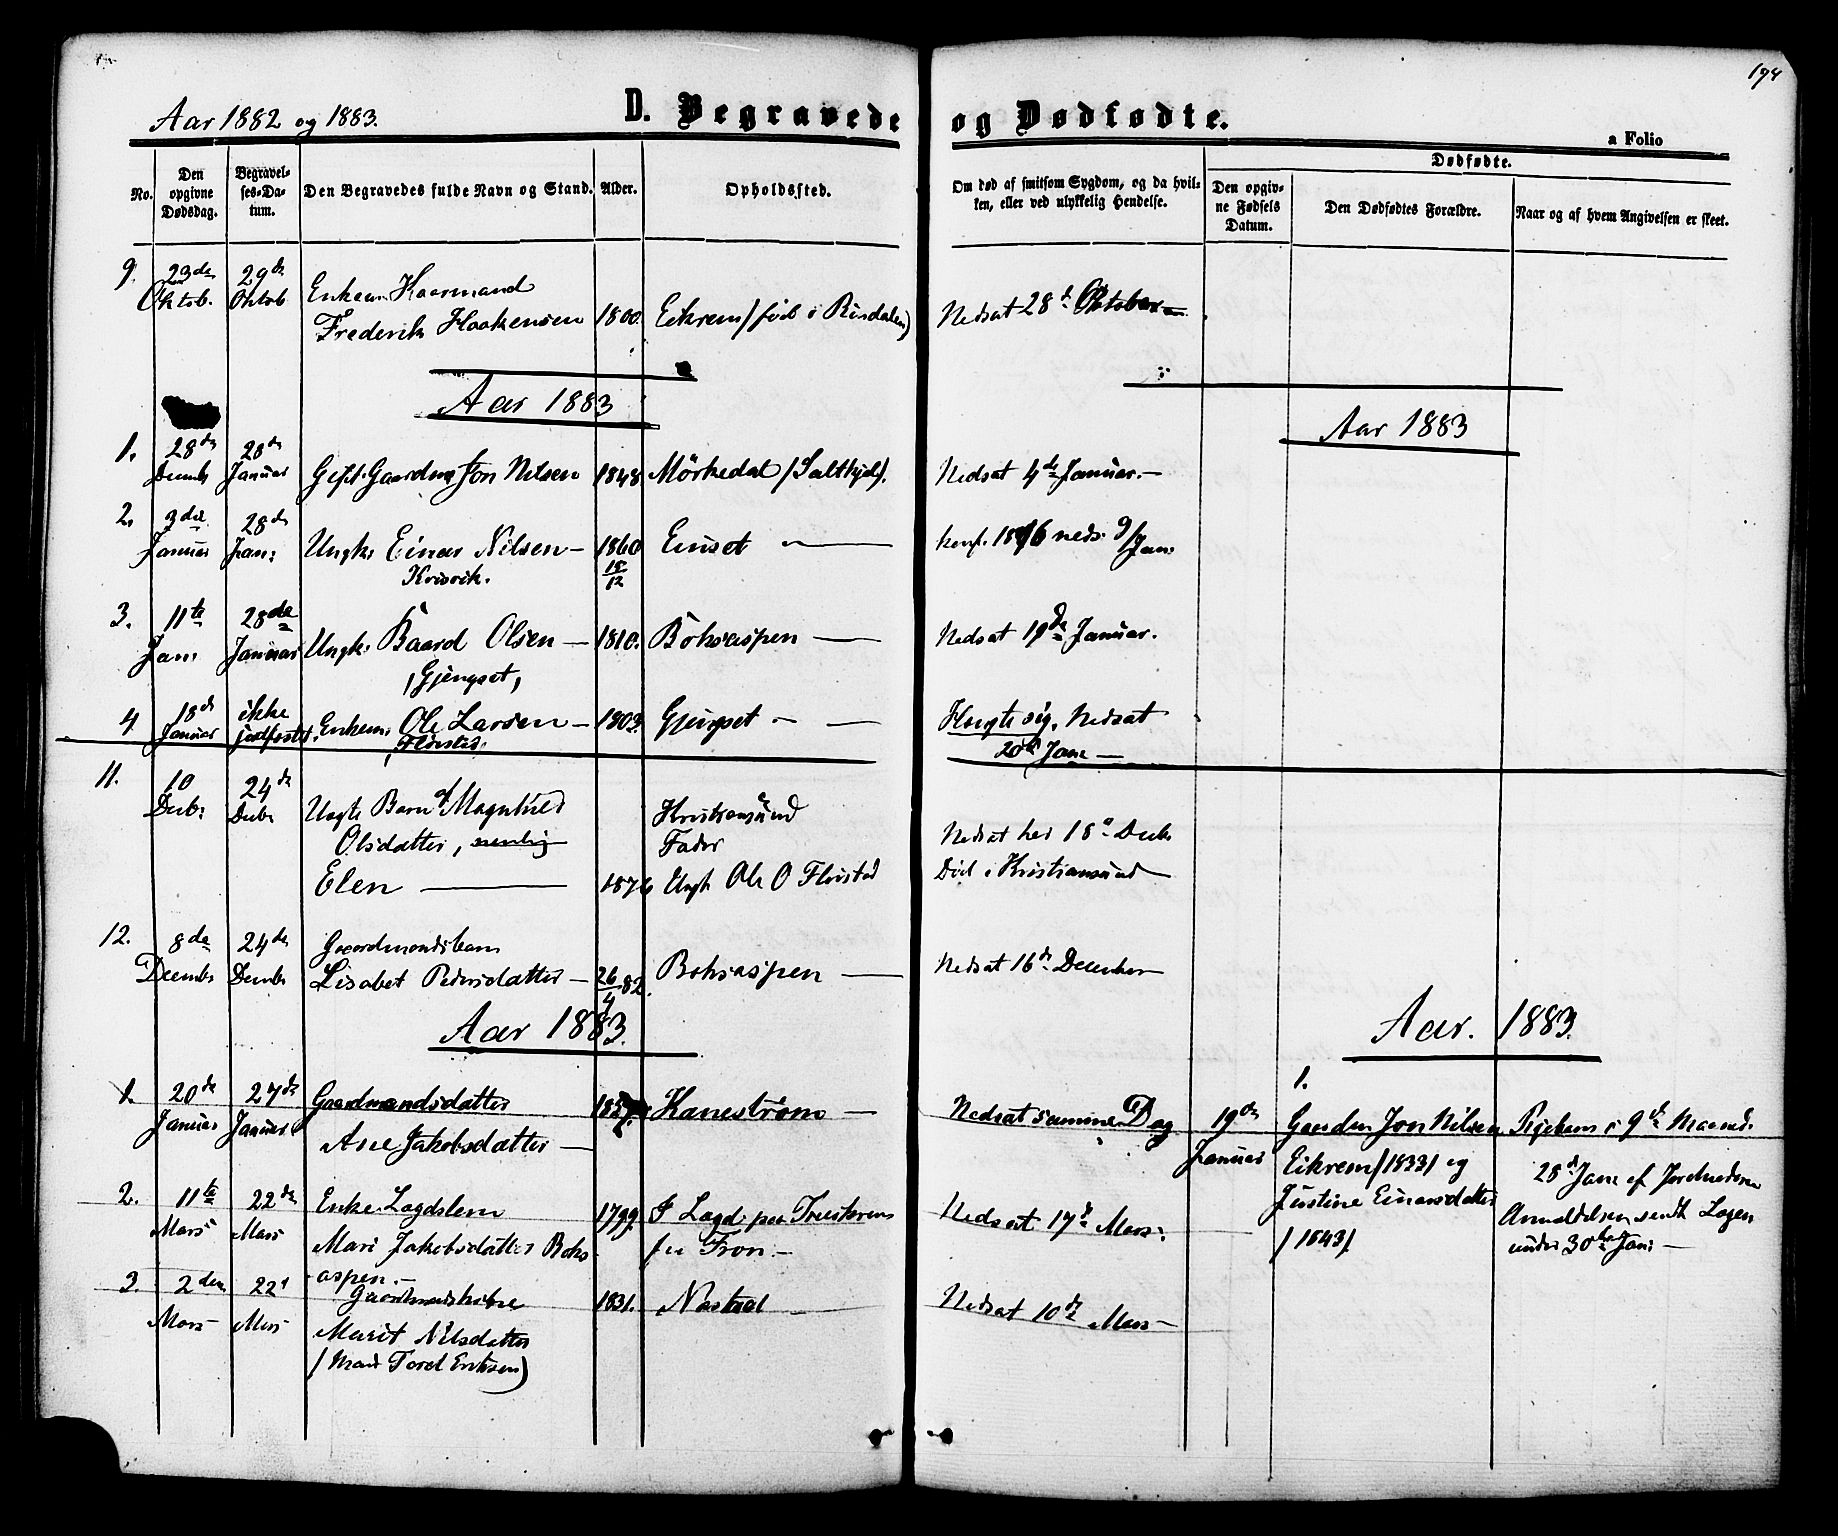 194
Aar 1882 og 1883.
D. Begravede og Dødfødte.
a Folio
No.
Den opgivne Dødsdag.
Begravelses-Datum.
Den Begravedes fulde Navn og Stand.
Alder.
Opholdssted.
Om død af smitsom Sygdom, og da hvilken, eller ved ulykkelig Hendelse.
Dødfødte.
Den opgivne Fødsels Datum.
Den Dødfødtes Forældre.
Naar og af hvem Angivelsen er skeet.
9. 23de 29de
Oktob. Oktob Enkem. Kaarmand
Frederik Haakensen 1800. Eikrem (føib i Rindalen) Nedsat 28d Oktober
Aar 1883
Aar 1883
1. 28de 28de
Decmb Januar Gift. Gaardm Jon Nilsen 1848 Mørkedal (Salthyd). Nedsat 4de Januar.
2. 3die 28de
Januar Jan: Ungk: Einar Nilsen 1860 Einset Konf. 1876 neds. 9/ Jan:
Krisvik. 15/12
3. 11te 28de
Jan: Januar Ungk: Baard Olsen 1810. Boksaspen Nedsat 19de Januar.
(Gjengset,
4 18de ikke
Januar jordfæstet. Enkem. Ole Larsen 1803. Gjengset Hengte sig. Nedsat
Flovstad. 20de Jan:
11. 10 24de
Decb: Decb: Uægte Barn af Magnhild Kristiansund
Olsdatter, nemlig Fader Nedsat her 18de Decb.
Elen 1876 Ungk Ole O Flovstad Død i Kristiansund
12. 8de 24de Gaardmandsbarn
Decmbr Decmbr Lisabet Pedersdatter 26/4 82. Boksaspen Nedsat 16de December
Aar 1883.
Aar. 1883.
1.
1. 20de 27de Gaardmandsdatter Kanestrøm Nedsat samme Dag
Januar Januar Ane Jakobsdatter
19de Januar
Gaardm Jon Nilsen
Eikrem (1833) og
Justine Einarsdatter
(1843)
i 9de Maaned.
28d Jan: af Jordmoderen
Anmeldelsen sendt Lægen
under 30te Jan:
2. 11te 22de Enke. Lægdslem 1799. I Lægd paa Trusterens
Mars Mars Mari Jakobsdatter Boks- Tron. Nedsat 17d Mars.
aspen.
3. 2den 22d Gaardmandskone 1831. Nastad Nedsat 10de Mars
Mars Mars Marit Nilsdatter
(Mand Tord Eriksen)